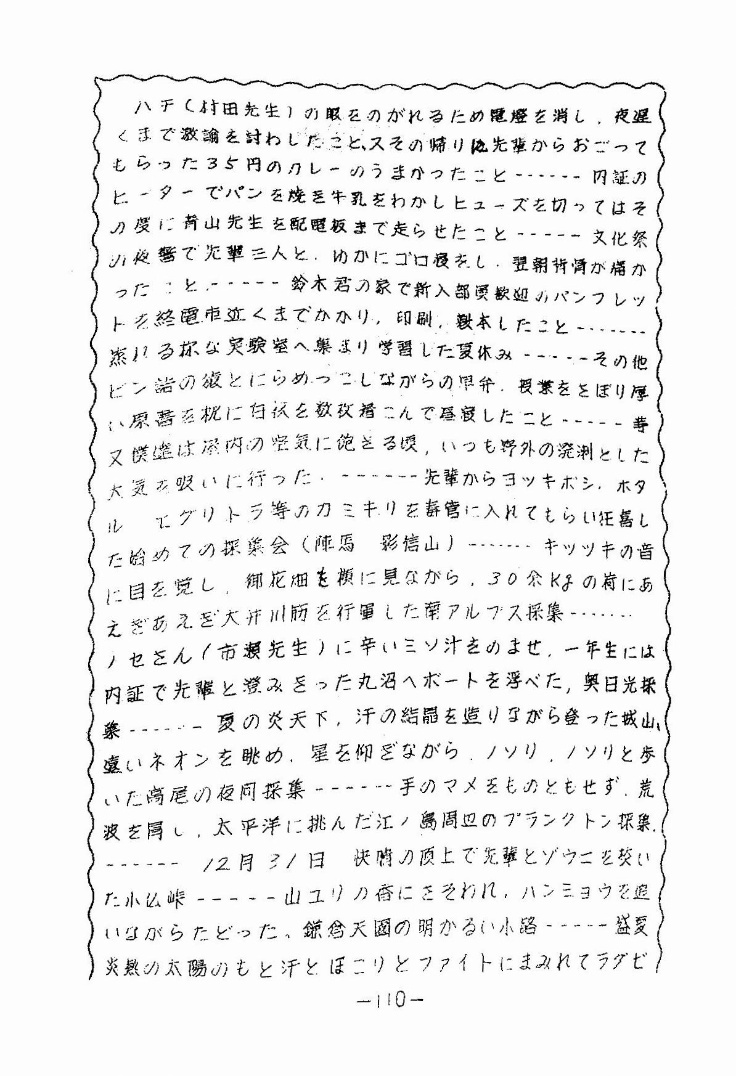 ハチ(村田先生)の眼をのがれるため電燈を消し、夜遅
くまで激論を討わしたこと、又その帰りに先輩からおごって
もらった35円のカレーのうまかったこと------内証の
ヒーターでパンを焼き牛乳をわかしヒューズを切ってはそ
の度に青山先生を配電板まで走らせたこと-----文化祭
の夜警で先輩三人と、ゆかにゴロ寝をし、翌朝背骨が痛か
ったこと、-----鈴木君の家で新入部員歓迎のパンフレッ
トを終電車近くまでかかり、印刷、製本したこと-------
蒸れる様な実験室へ集まり学習した夏休み-----その他
ビン詰の猿とにらめっこしながらの早弁、授業をさぼり厚
い原書を枕に白衣を数枚着こんで昼寝したこと-----等
又僕達は屋内の空気に飽きる頃、いつも野外の溌溂とした
大気を吸いに行った。-------先輩からヨツキボシ、ホタ
ル エグリトラ等のカミキリを毒管に入れてもらい狂喜し
た始めての採集会(陣馬 影信山)-------キツツキの音
に目を覚し、御花畑を横に見ながら、30余Kgの荷にあ
えぎあえぎ大井川筋を行軍した南アルプス採集-------
ノセさん(市瀬先生)に辛いミソ汁をのませ、一年生には
内証で先輩と澄みきった丸沼へボートを浮べた、奥日光採
集------夏の炎天下、汗の結晶を造りながら登った城山、
遠いネオンを眺め、星を仰ぎながら、ノソリ、ノソリと歩
いた高尾の夜間採集------手のマメをものともせず、荒
波を肩し、太平洋に挑んだ江ノ島周辺のプランクトン採集、
------ 12月31日 快晴の頂上で先輩とゾウニを炊い
た小仏峠-----山ユリの香にさそわれ、ハンミョウを追
いながらたどった、鎌倉天園の明かるい小路-----盛夏
炎熱の太陽のもと汗とほこりとファイトにまみれてラグビ
-110-